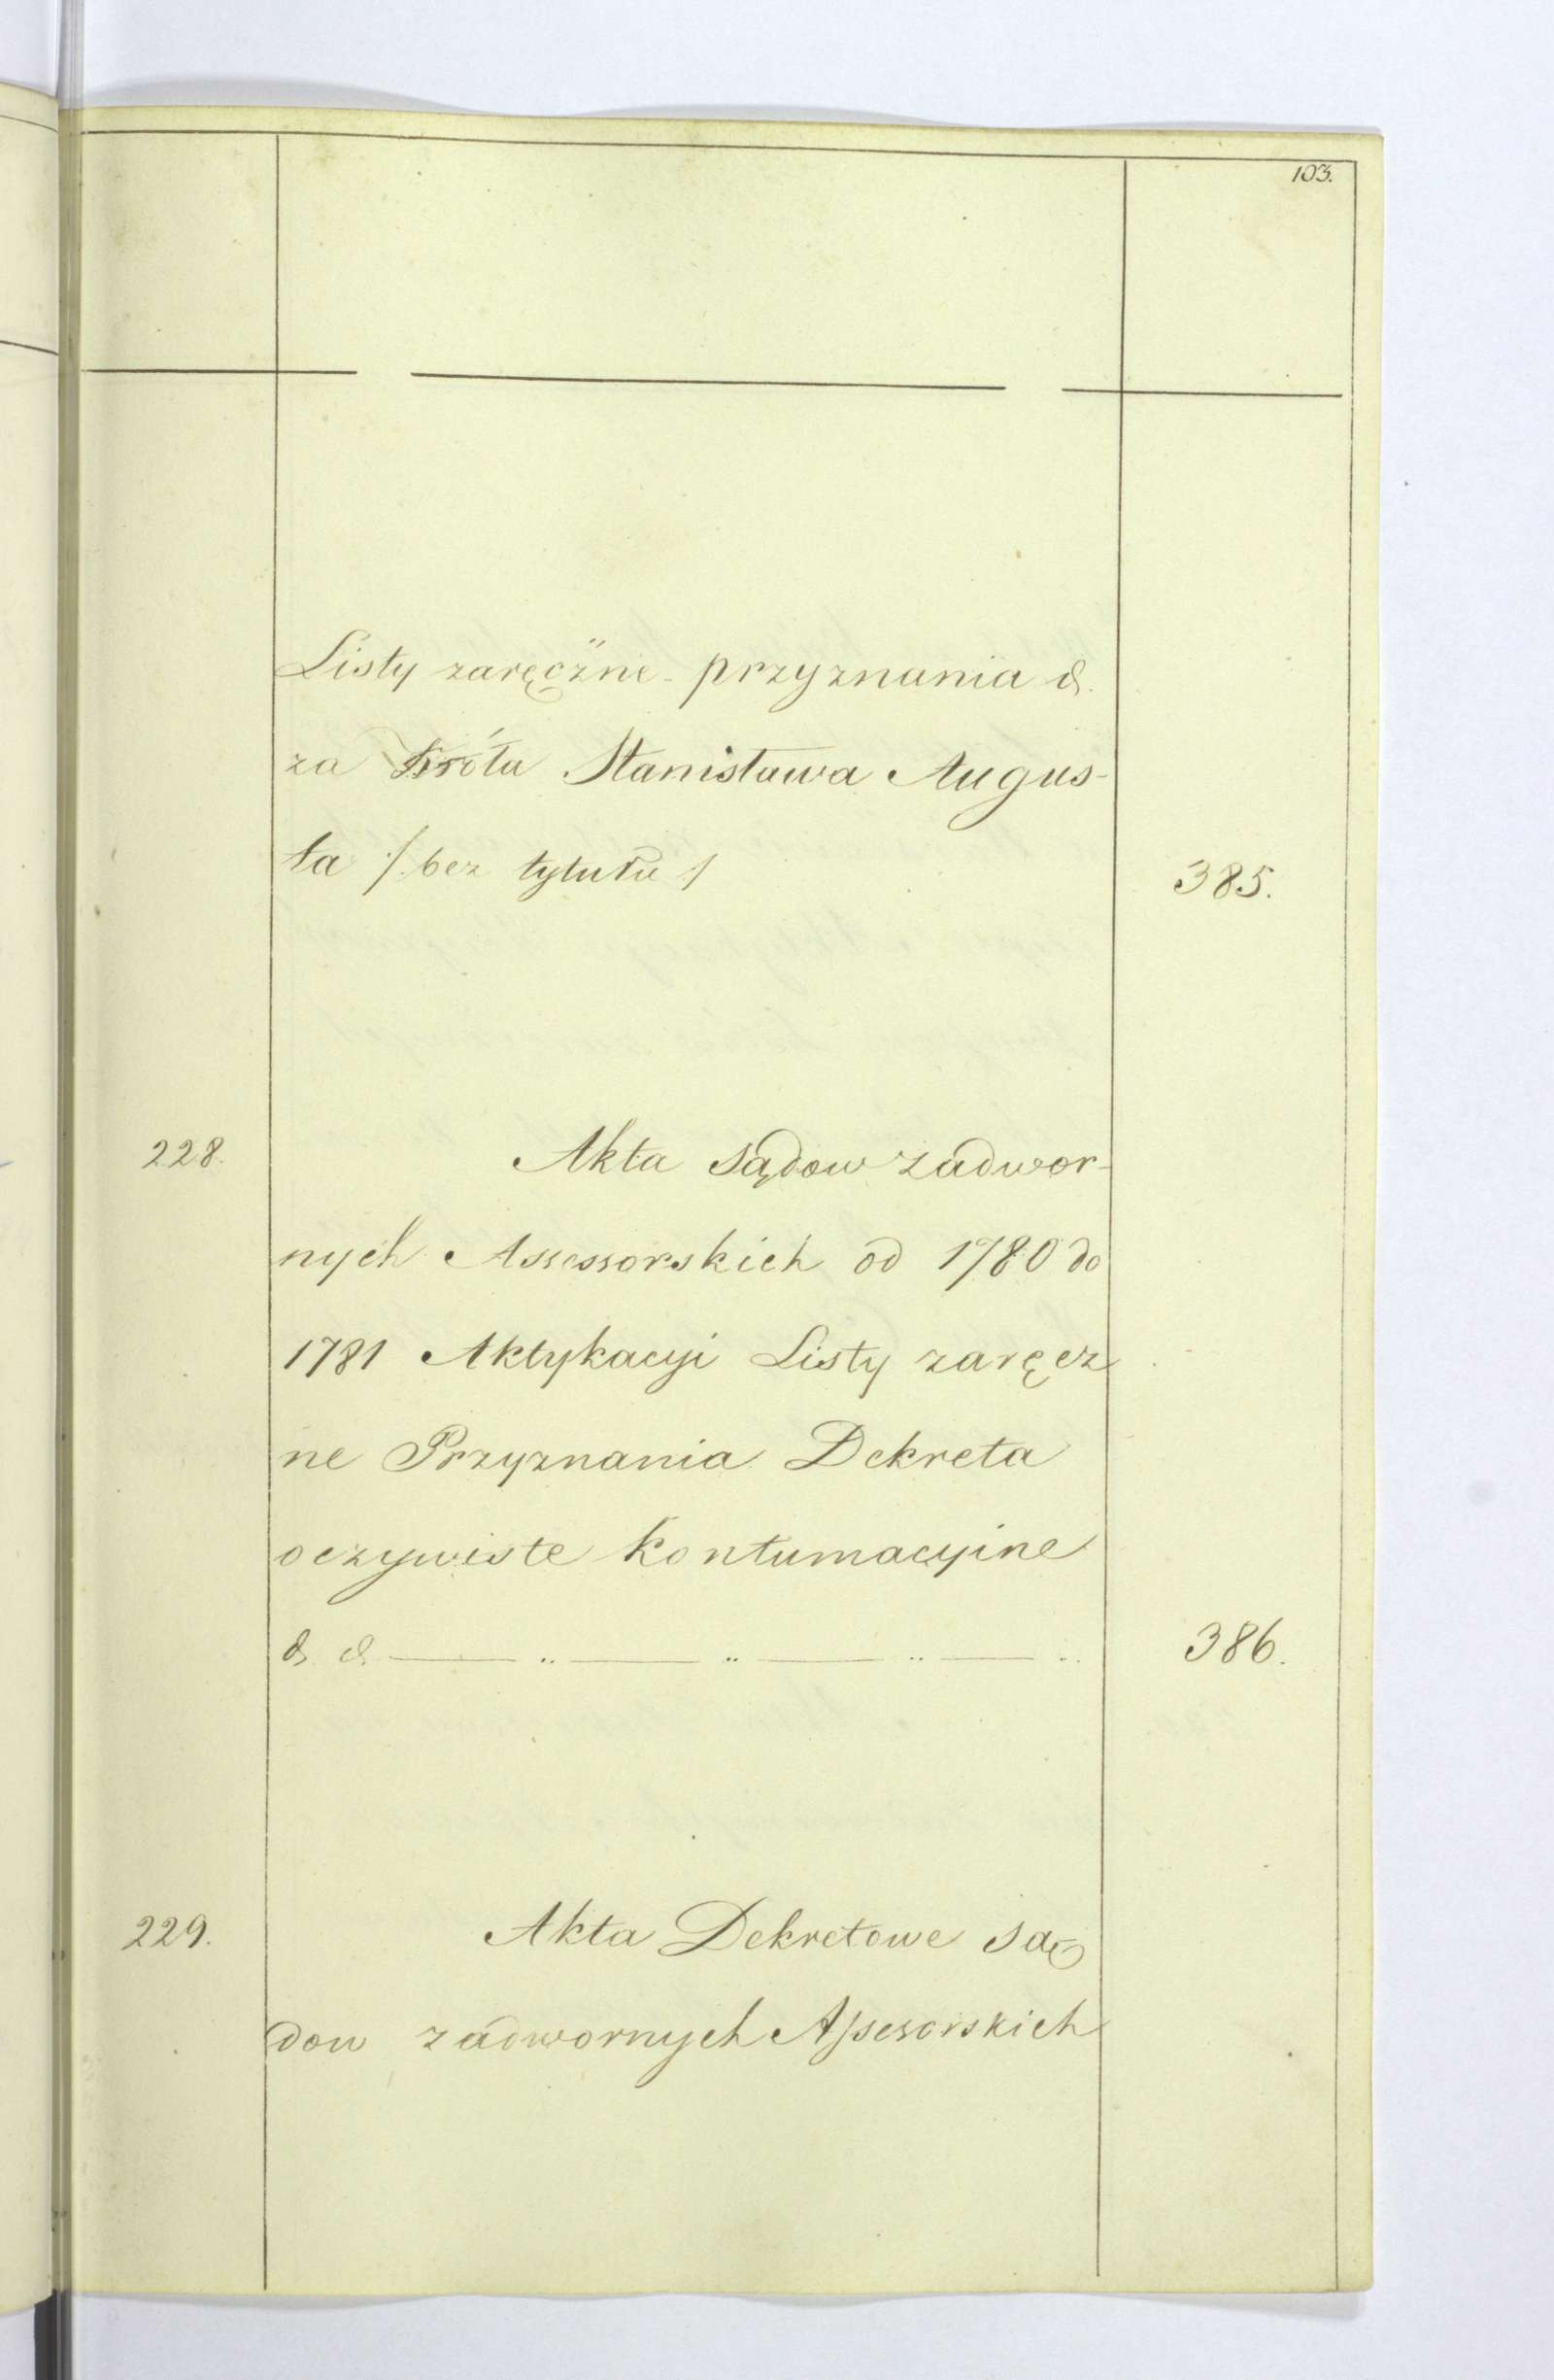 103.
Listy zaręczne przyznania &.
za Króla Stanisława Augus-
ta /. bez tytułu /
385.
228. Akta sądow zadwor-
nych Assessorskich od 1780 do
1781 Aktykacyi Listy zaręcz
ne Przyznania Dekreta
oczywiste kontumacyine
& &. — „ — „ — „ — „
386.
229. Akta Dekretowe są
dow zadwornych Assesorskich